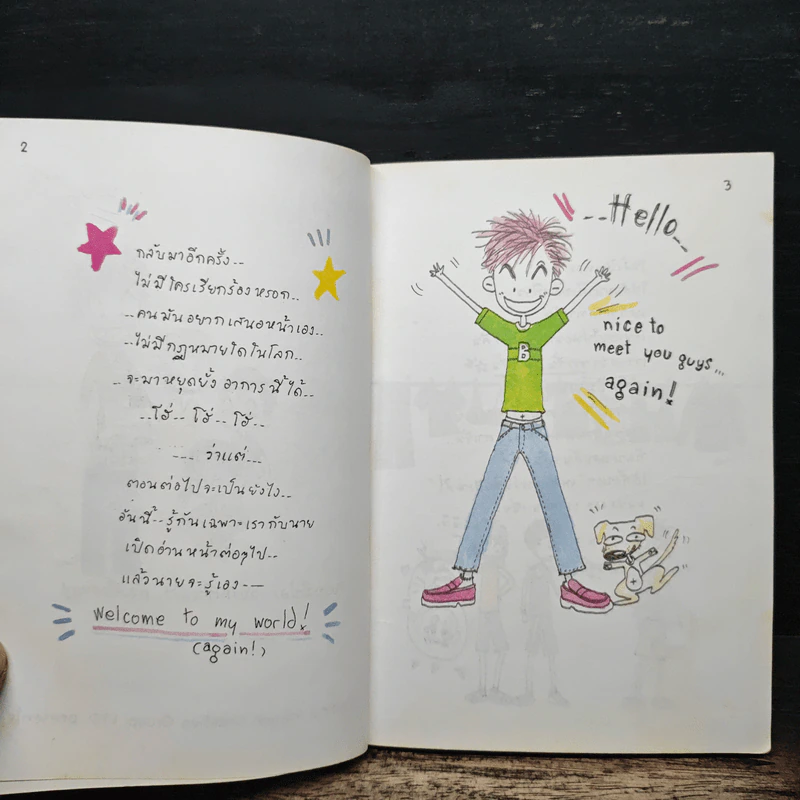 2
กลับมาอีกครั้ง...
ไม่มีใครเรียกร้องหรอก..
..คนมันอยากเสนอหน้าเอง..
..ไม่มีกฎหมายใดในโลก..
..จะมาหยุดยั้ง อาการนี้ได้..
..โฮ่.. โฮ่.. โฮ่..
.... ว่าแต่...
ตอนต่อไปจะเป็นยังไง..
อันนี้..รู้กันเฉพาะเรากับนาย
เปิดอ่านหน้าต่อๆไป..
แล้วนายจะรู้เอง---
Welcome to my world!
(again!)
3
..Hello..
B
nice to
meet you guys...
again!